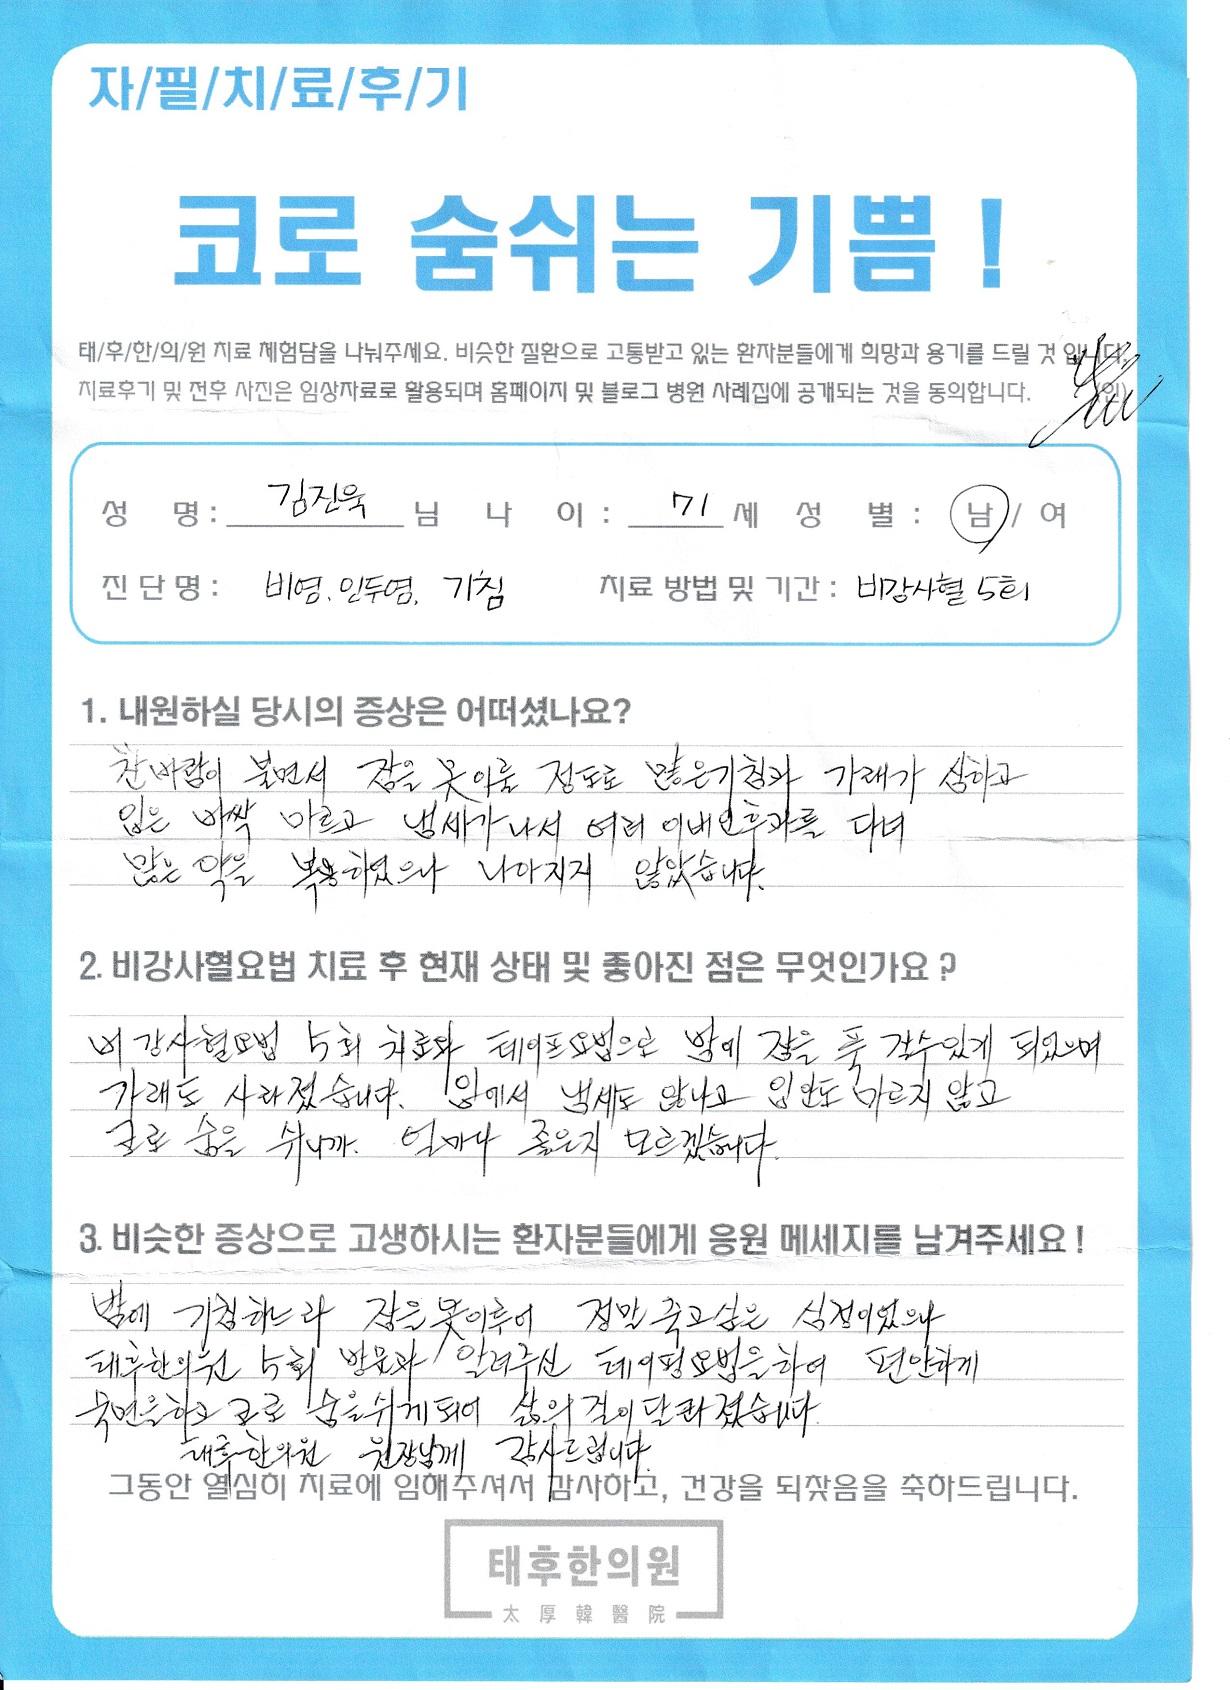 자/필/치/료/후/기
코로 숨쉬는 기쁨 !
태/후/한/의/원 치료 체험담을 나눠주세요. 비슷한 질환으로 고통받고 있는 환자분들에게 희망과 용기를 드릴 것 입니다.
치료후기 및 전후 사진은 임상자료로 활용되며 홈페이지 및 블로그 병원 사례집에 공개되는 것을 동의합니다. (인)
성 명 : 김진욱 님 나 이 : 71 세 성 별 : 남 / 여
진 단 명 : 비염. 인두염. 기침 치료 방법 및 기간 : 비강사혈 5회
1. 내원하실 당시의 증상은 어떠셨나요?
찬바람이 불면서 잠을 못이룰 정도로 많은기침과 가래가 심하고
입은 바싹 마르고 냄세가 나서 여러 이비인후과를 다녀
많은 약을 복용하였으나 나아지지 않았습니다.
2. 비강사혈요법 치료 후 현재 상태 및 좋아진 점은 무엇인가요 ?
비강사혈요법 5회 치료와 테이프요법으로 밤에 잠을 푹 잘수있게 되었으며
가래도 사라졌습니다. 입에서 냄세도 않나고 입안도 마르지 않고
코로 숨을 쉬니까. 얼마나 좋은지 모르겠습니다.
3. 비슷한 증상으로 고생하시는 환자분들에게 응원 메세지를 남겨주세요 !
밤에 기침하느라 잠을못이루어 정말 죽고싶은 심정이었으나
태후한의원 5회 방문과 알려주신 테이핑요법을하여 편안하게
숙면을하고 코로 숨을쉬게되어 삶의 질이달라졌습니다.
태후한의원 원장님께 감사드립니다.
그동안 열심히 치료에 임해주셔서 감사하고, 건강을 되찾음을 축하드립니다.
태후한의원
太 厚 韓 醫 院